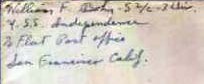 William F.
U.S.S. Independence
% Fleet Post Office
San Francisco Calif.